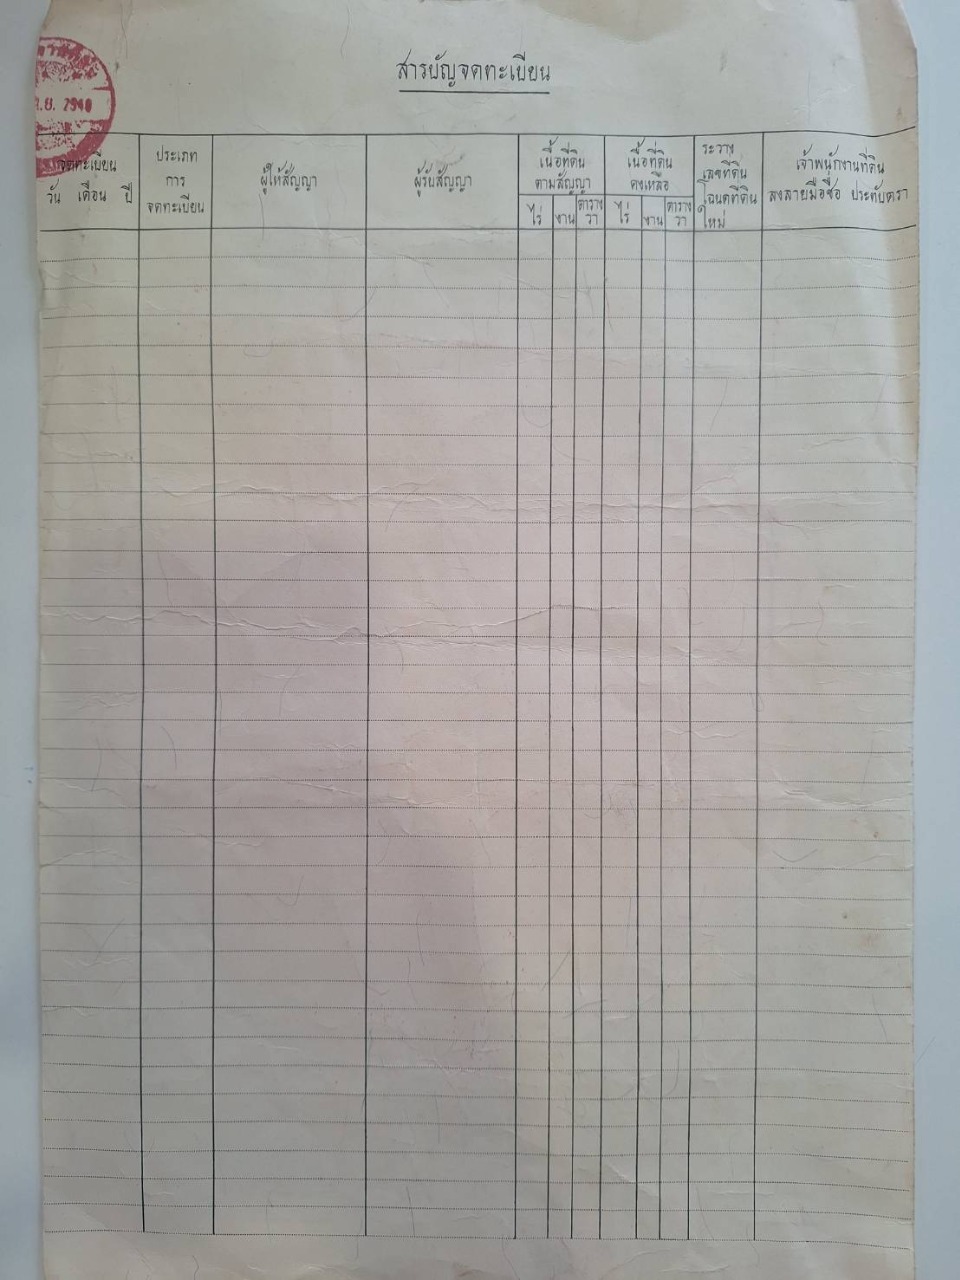 สารบัญจดทะเบียน
.ย. 2540
จดทะเบียน
วัน เดือน ปี
ประเภท
การ
จดทะเบียน
ผู้ให้สัญญา
ผู้รับสัญญา
เนื้อที่ดิน
ตามสัญญา
ไร่ งาน ตาราง
วา
เนื้อที่ดิน
คงเหลือ
ไร่ งาน ตาราง
วา
ระวาง
เลขที่ดิน
โฉนดที่ดิน
ใหม่
เจ้าพนักงานที่ดิน
ลงลายมือชื่อ ประทับตรา